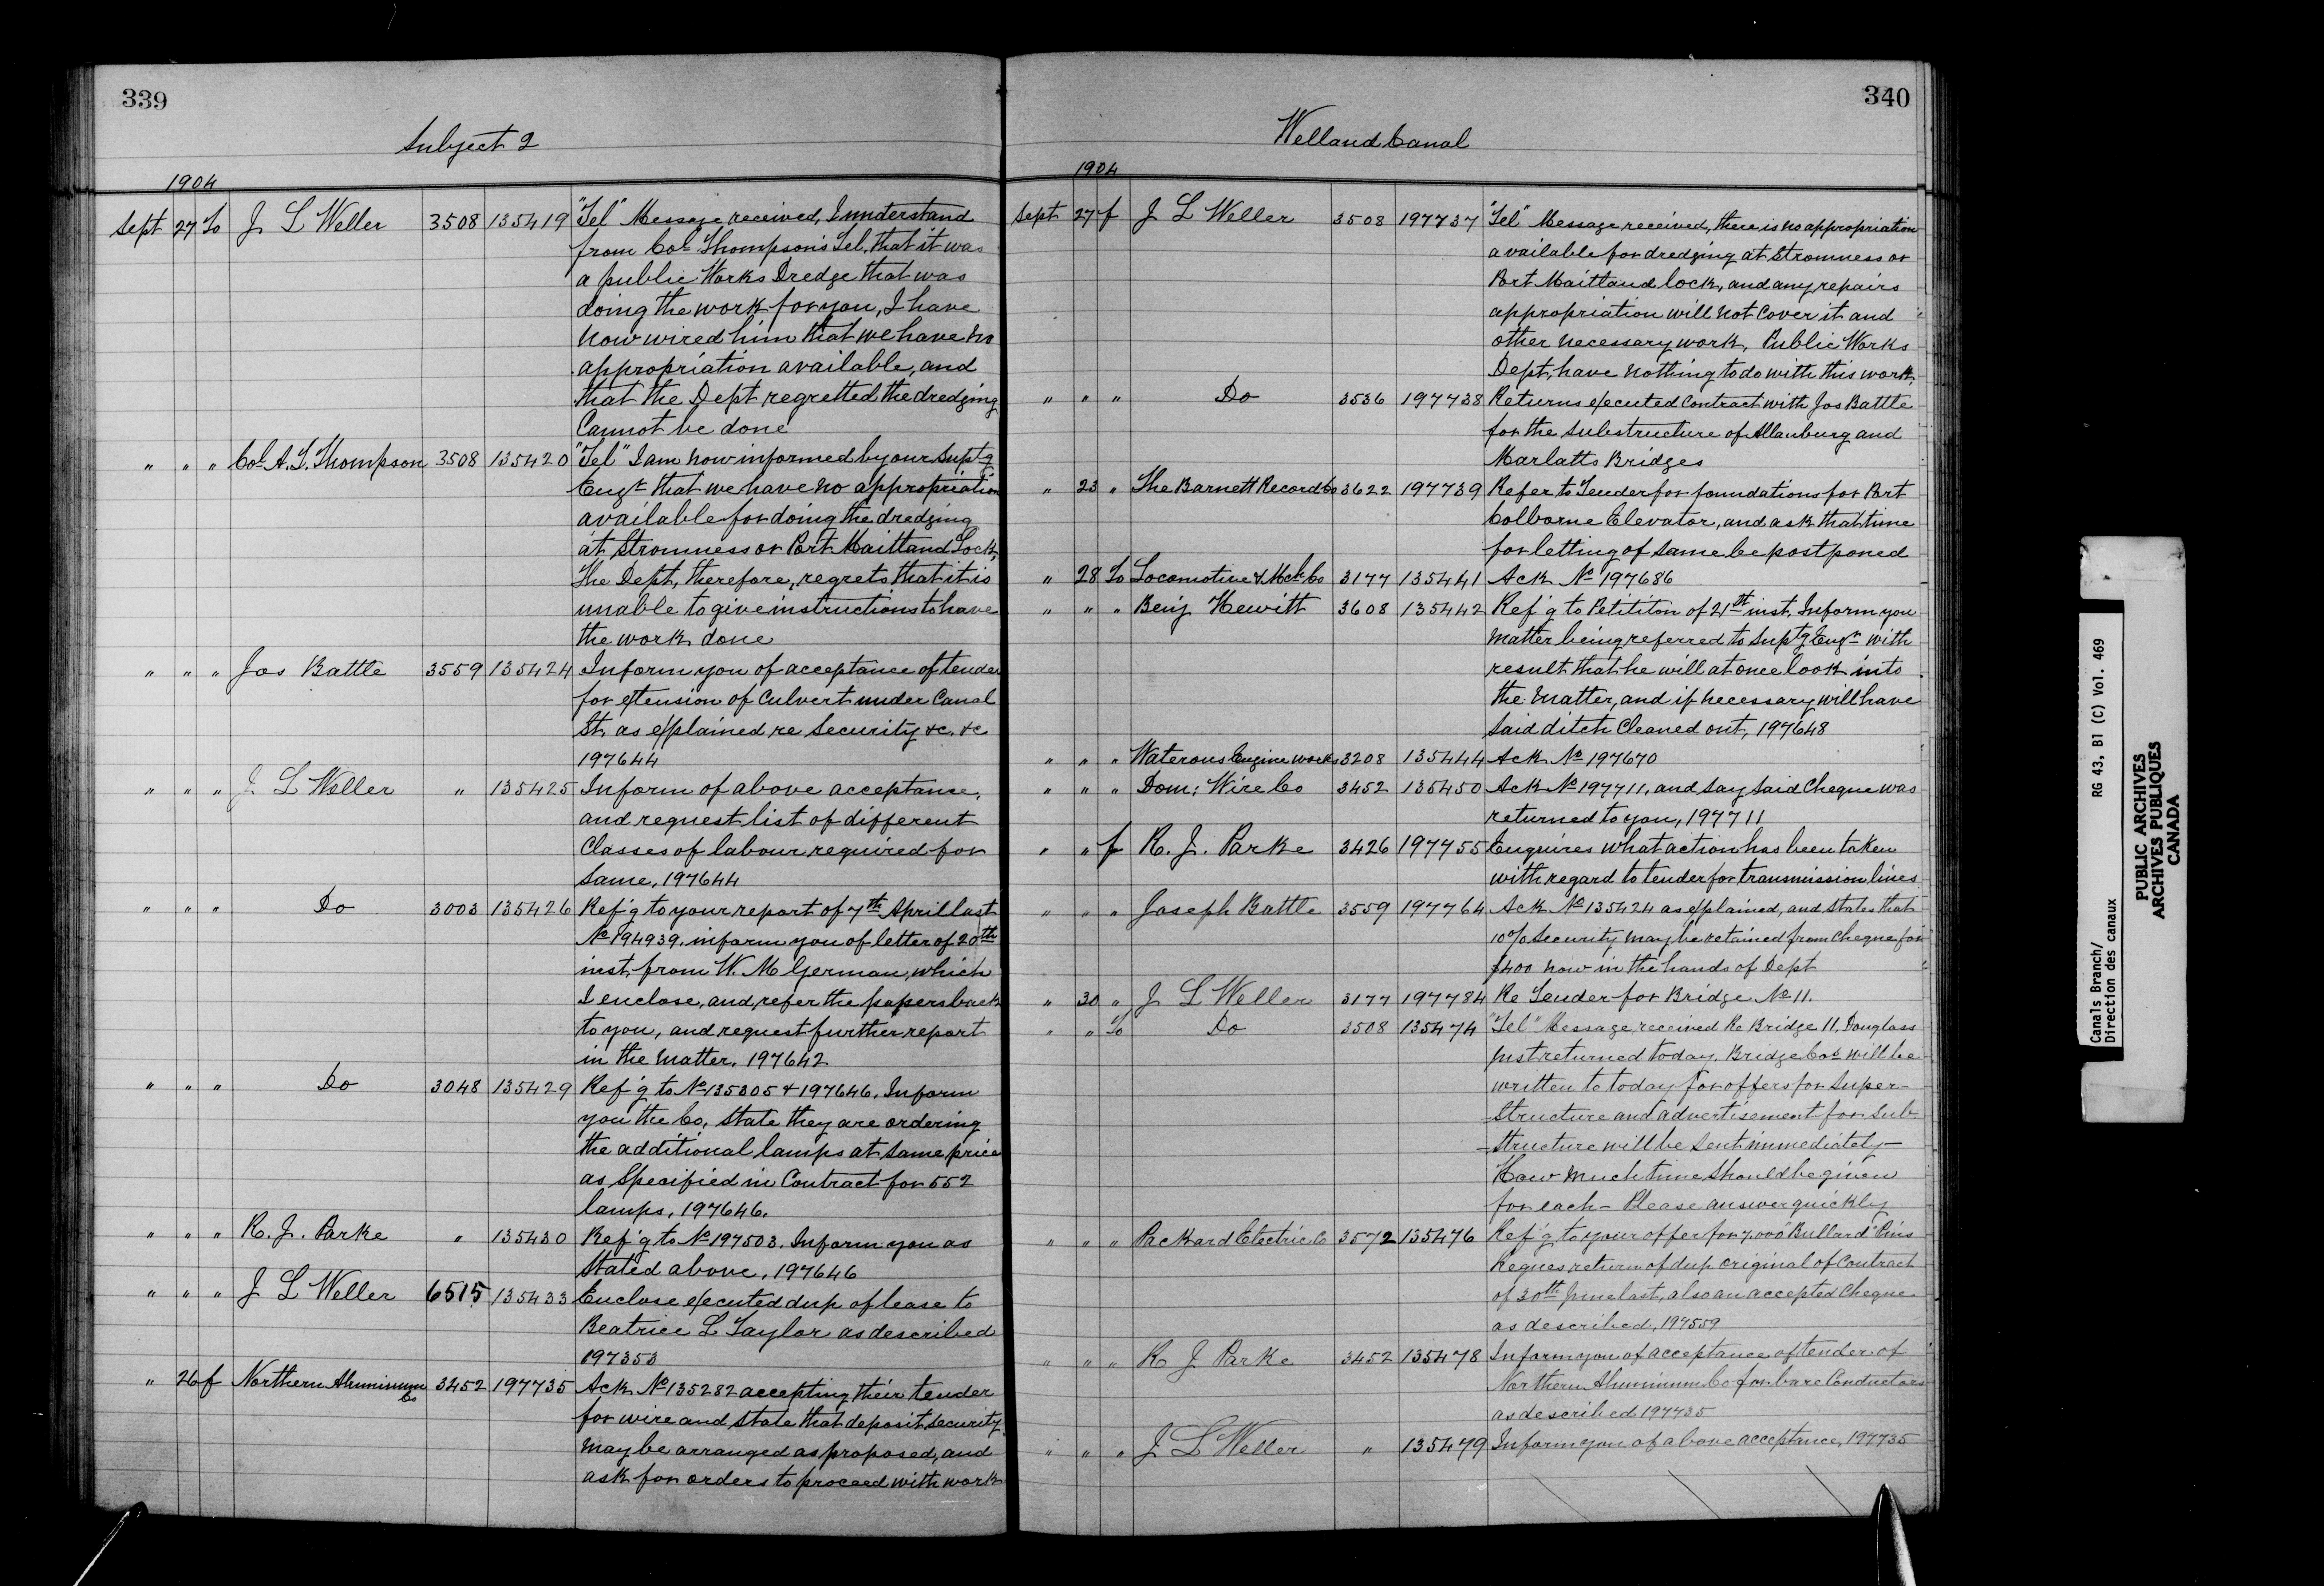 339
Subject 2
1904
Sept 27 To J L Weller 3508 135419 "Tel" Message received, I understand
from Col Thompson's Tel, that it was
a public Works Dredge that was
doing the work for you, I have
now wired him that we have no
appropriation available, and
that the Dept regretted the dredging
Cannot be done
" " " Col A. T. Thompson 3508 135420 "Tel" I am now informed by our Suptg
Engr that we have no appropriation
available for doing the dredging
at Stromness or Port Maitland Lock,
The Dept, therefore, regrets that it is
unable to give instructions to have
the work done
" " " Jos Battle 3559 135424 Inform you of acceptance of tender
for extension of Culvert under Canal
St, as explained, re Security &c. &c
197644
" " " J L Weller " 135425 Inform of above acceptance,
and request list of different
Classes of labour required for
same, 197644
" " " Do 3003 135426 Ref'g to your report of 7th April last
No 194939, inform you of letter of 20th
inst, from W. M German, which
I enclose, and, refer the papers back
to you, and request further report
in the matter, 197642
" " " Do 3048 135429 Ref'g to No 135305 & 197646, Inform
you the Co, state they are ordering
the additional lamps at same price
as Specified in Contract for 552
lamps, 197646.
" " " R. J. Parke " 135430 Ref'g to No 197503. Inform you as
Stated above, 197646
" " " J L Weller 6515 135433 Enclose executed dup of lease to
Beatrice L Taylor as described
197353
" 26 f Northern Aluminum Co 3452 197735 Ack No 135282 accepting their tender
for wire and state that deposit security
may be arranged as proposed, and
ask for orders to proceed with work
340
Welland Canal
1904
Sept 27 f J L Weller 3508 197737 "Tel" Message received, there is no appropriation
available for dredging at Stromness or
Port Maitland lock, and any repairs
appropriation will not cover it and
other necessary work, Public Works
Dept, have nothing to do with this work,
" " " Do 3536 197738 Returns executed Contract with Jos Battle
for the Substructure of Allanburg and
Marlatts Bridges
" 23 " The Barnett Record Co 3622 197739 Refer to Tender for foundations for Port
Colborne Elevator, and ask that time
for letting of same be postponed
" 28 To Locomotive & Mch Co 3177 135441 Ack No 197686
" " " Benj Hewitt 3608 135442 Ref'g to Petititon of 21st inst. Inform you
matter being referred to Suptg Engr with
result that he will at once look into
the matter, and if necessary will have
said ditch Cleaned out, 197648
" " " Waterous Engine works 3208 135444 Ack No 197670
" " " Dom: Wire Co 3452 135450 Ack No 197711, and say said Cheque was
returned to you, 197711
" " f R. J. Parke 3426 197755 Enquires what action has been taken
with regard to tender for transmission lines
" " " Joseph Battle 3559 197764 Ack No 135424 as explained, and states that
10% Security may be retained from Cheque for
$400 now in the hands of Dept
" 30 " J L Weller 3177 197784 Re Tender for Bridge No 11.
" " To Do 3508 135474 "Tel" Message received Re Bridge 11, Douglass
just returned today. Bridge Cos will be
written to today for offers for Super-
-Structure and advertisement for Sub-
-structure will be sent immediately-
How much time should be given
for each - Please answer quickly
" " " Packard Electric Co 3572 135476 Ref'g to your offer for 7.000 "Bullard" Pins
Reques return of dup original of Contract
of 30th June last, also an accepted Cheque
as described, 197559
" " " R J Parke 3452 135478 Inform you of acceptance of tender of
Northern Aluminum Co for bare Conductors
as described 197735
" " " J L Weller " 135479 Inform you of above acceptance, 197735
Canals Branch/ RG 43, B1 (C) Vol. 469
Direction des canaux
PUBLIC ARCHIVES
ARCHIVES PUBLIQUES
CANADA